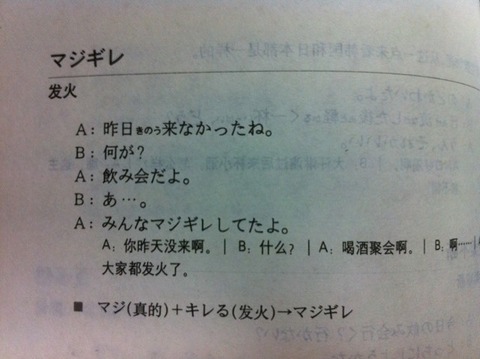 マジギレ
发火
A: 昨日きのう来なかったね。
B: 何が?
A: 飲み会だよ。
B: あ…。
A: みんなマジギレしてたよ。
A: 你昨天没来啊。| B: 什么? | A: 喝酒聚会啊。| B: 啊……|
大家都发火了。
■ マジ(真的)+キレる(发火)→マジギレ